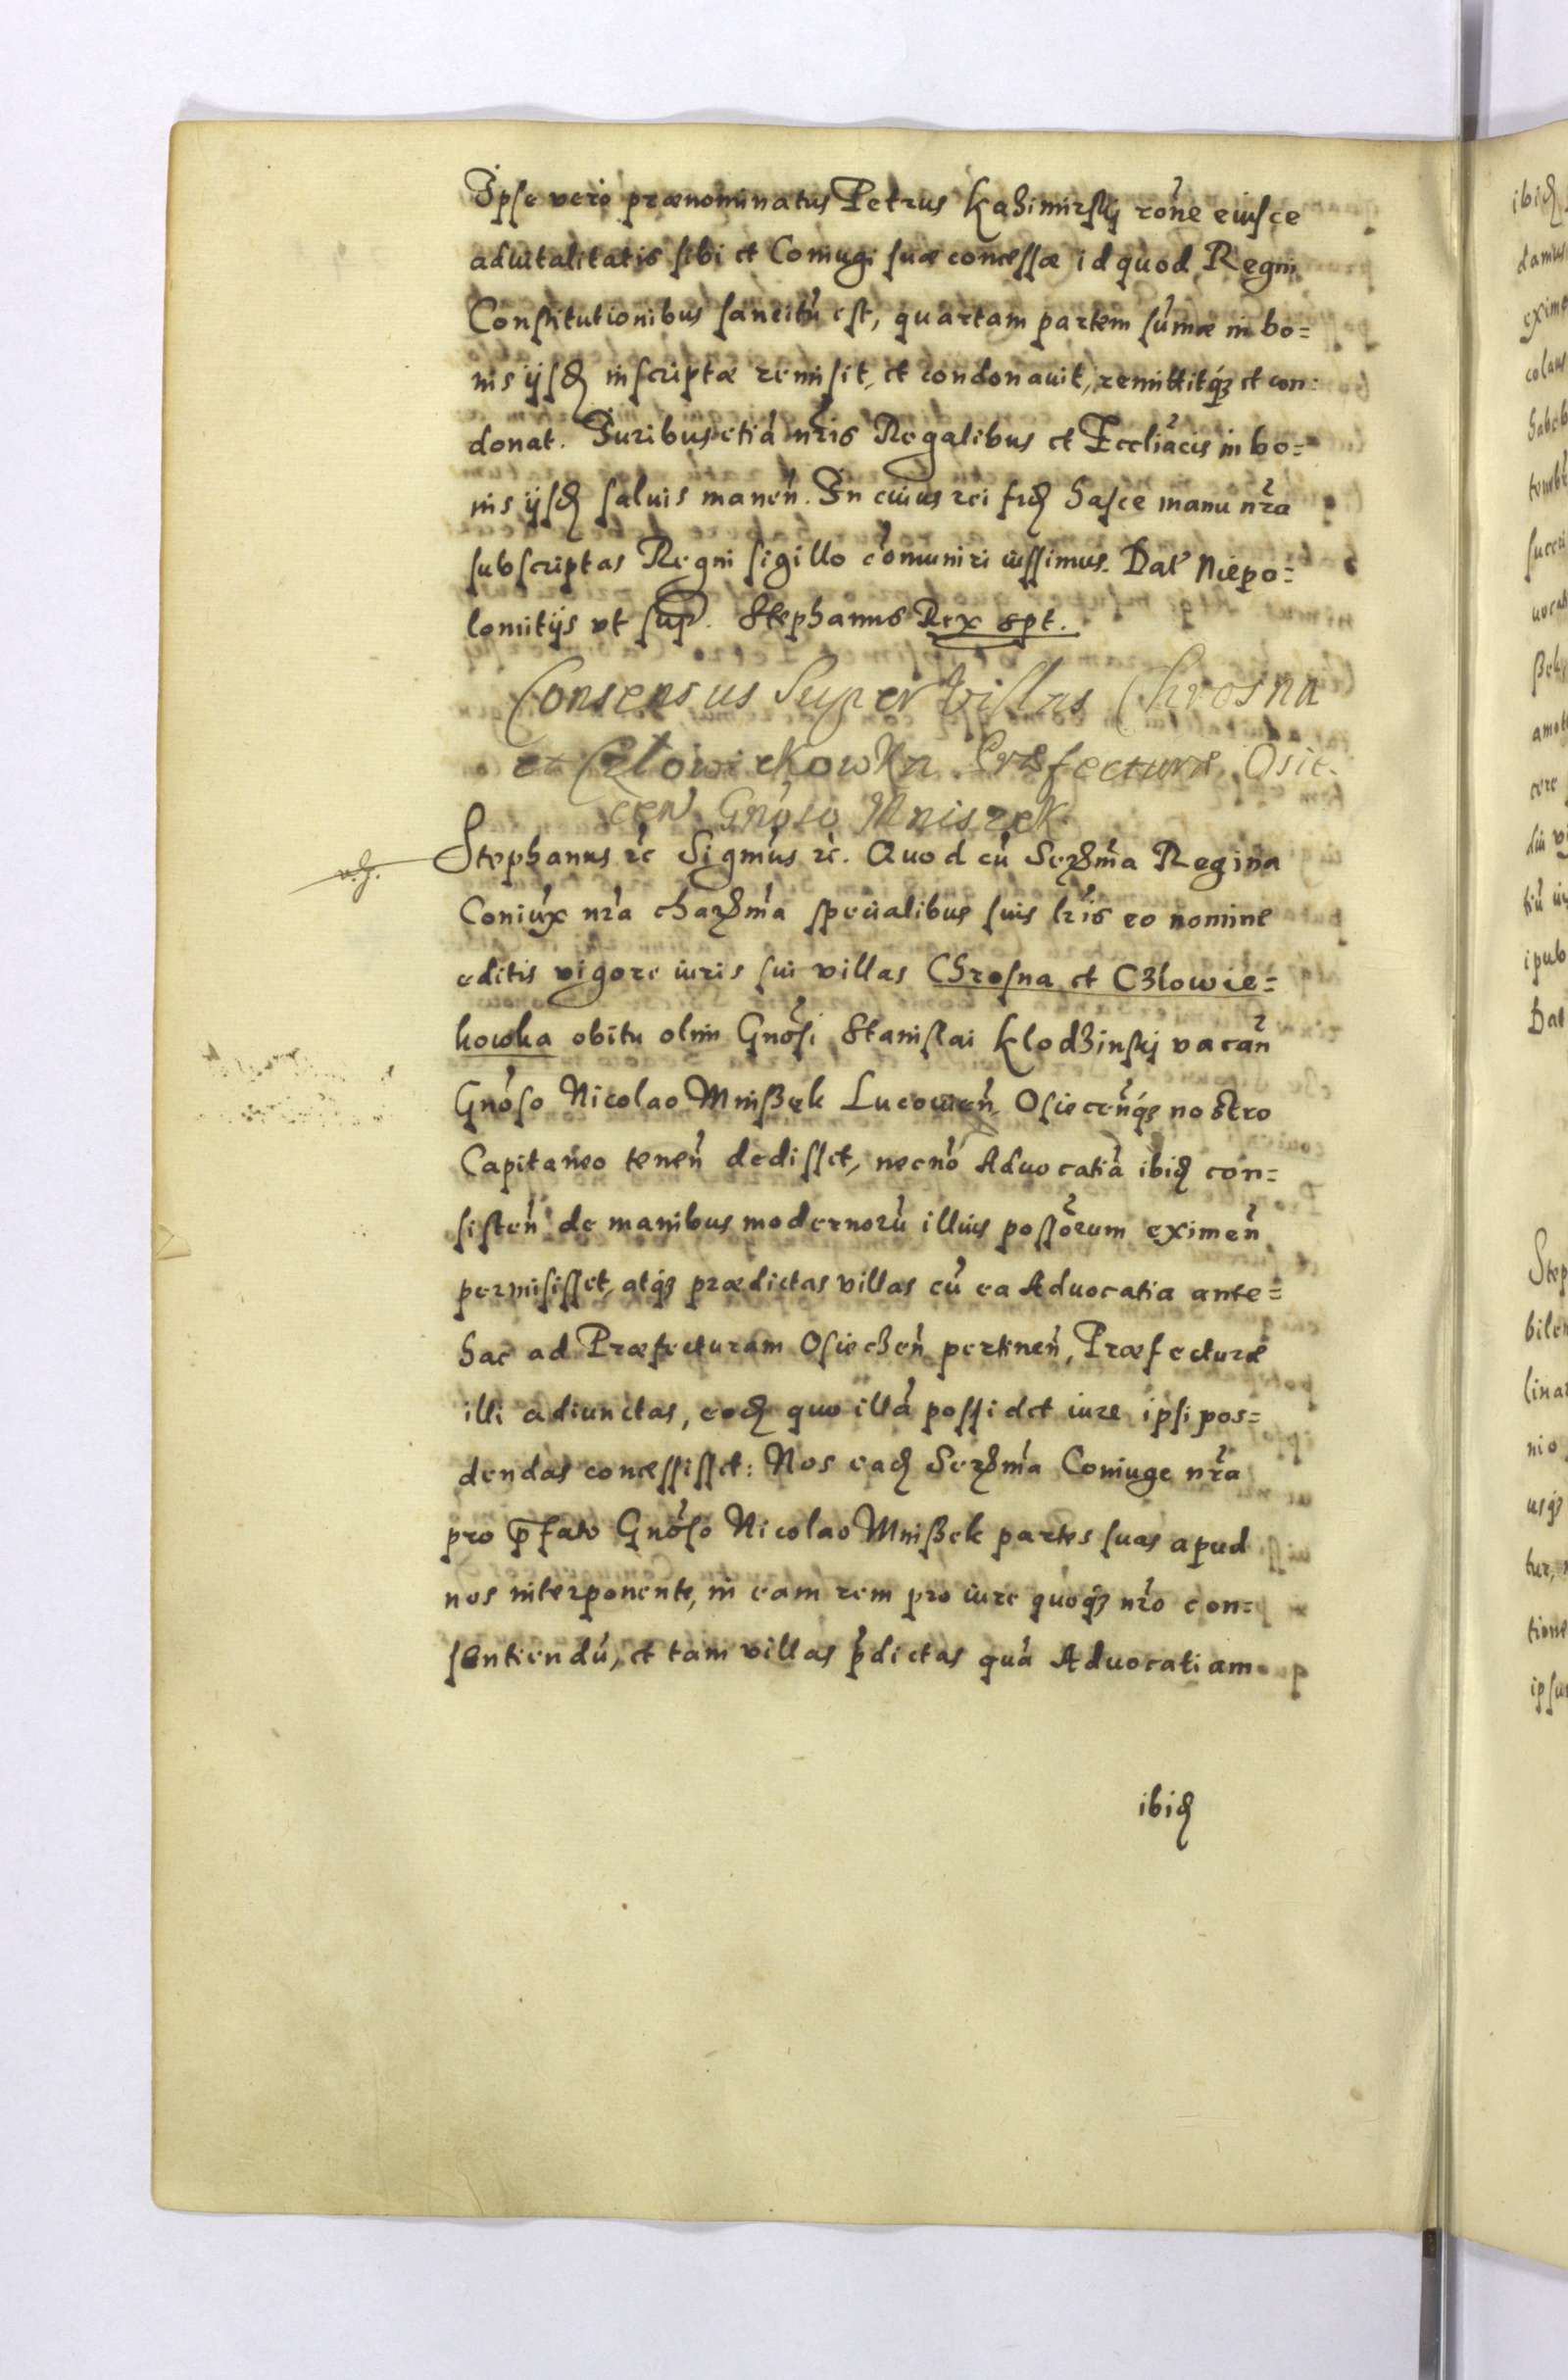 Ipse vero prænominatus Petrus Kazimirskij rone eiusce
aduitalitatis sibi et Coniugi suæ concessæ id quod Regni
Constitutionibus sancitu est, quartam partem sumæ in bo=
nis ijsd inscriptæ remisit, et condonauit, remittitq et con=
donat. Iuribus etia nris Regalibus et Eccliacis in bo=
nis ijsd saluis manen. In cuius rei fid hasce manu nra
subscriptas Regni sigillo comuniri iussimus. Dat Niepo=
lomitijs vt sup. Stephanus Rex spt.
Consensus Super Villas Chrosna
et Człowiekowka Præfecturæ Osie-
cen Gnoso Mniszek
Stephanus rc Sigmus rc. Quod cu Serma Regina
Coniux nra charma specialibus suis lris eo nomine
editis vigore iuris sui villas Chrosna et Czlowie=
kowka obitu olim Gnosi Stanislai Klodzinskj vacan
Gnoso Nicolao Mnißek Lucowien Osiecenq nostro
Capitaneo tenen dedisset, necno Aduocatia ibid con=
sisten de manibus modernoru illius possorum eximen
permisisset, atq prædictas villas cu ea Aduocatia ante=
hac ad Præfecturam Osieczen pertinen, Præfecturæ
illi adiunctas, eod quo illa possidet iure ipsi pos=
dendas concessisset: Nos ead Serma Coniuge nra
pro pfato Gnoso Nicolao Mnißek partes suas apud
nos interponente, in eam rem pro iure quoq nro con=
sentiendu, et tam villas pdictas qua Aduocatiam
ibid